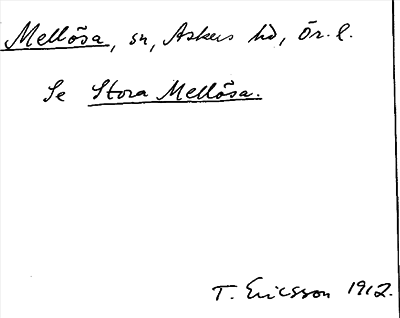 Mellösa, sn, Askers hd, Ör. l.
Se Stora Mellösa.
T. Ericsson 1912.